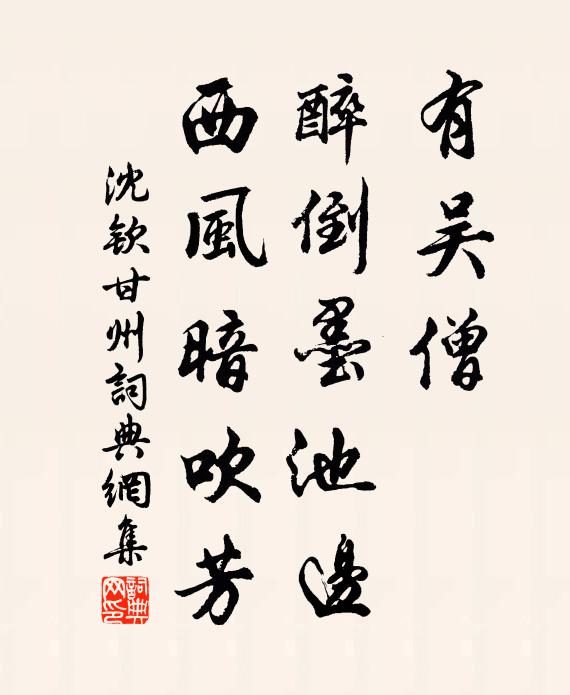 有吴僧
醉倒墨池邊
西風暗吹芳
沈欽甘州詞典網集
詞典網印